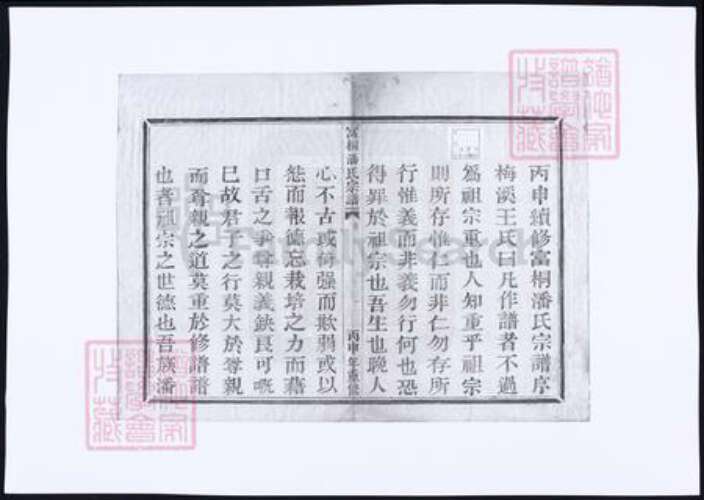 丙申續修富桐潘氏宗譜序
梅溪王氏曰凡作譜者不過
爲祖宗重也人知重乎祖宗
則所存惟仁而非仁勿存所
行惟義而非義勿行何也恐
得罪於祖宗也吾生也晚人
富桐潘氏宗譜
丙申年重修
心不古或倚强而欺弱或以
怨而報德忘栽培之力而藉
口舌之爭尊親義缺良可嘅
巳故君子之行莫大於尊親
而尊親之道莫重於修譜譜
也者祖宗之世德也吾族潘
FamilySearch
譜學會
珍藏